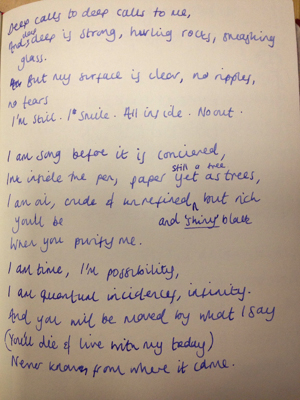 Deep calls to deep calls to me,
And deep is strong, hurling rocks, smashing
glass.
But my surface is clear, no ripples,
no tears
I'm still. I smile. All inside. No out.
I am song before it is concieved,
still a tree
Ink inside the pen, paper yet as trees,
I am oil, crude & unrefined, but rich
You'll be and 'shiny' black
When you purify me.
I am time, I'm possibility,
I am quantual incidences, infinity.
And you will be moved by what I say
(You'll die & live with my today)
Never known from where it came.